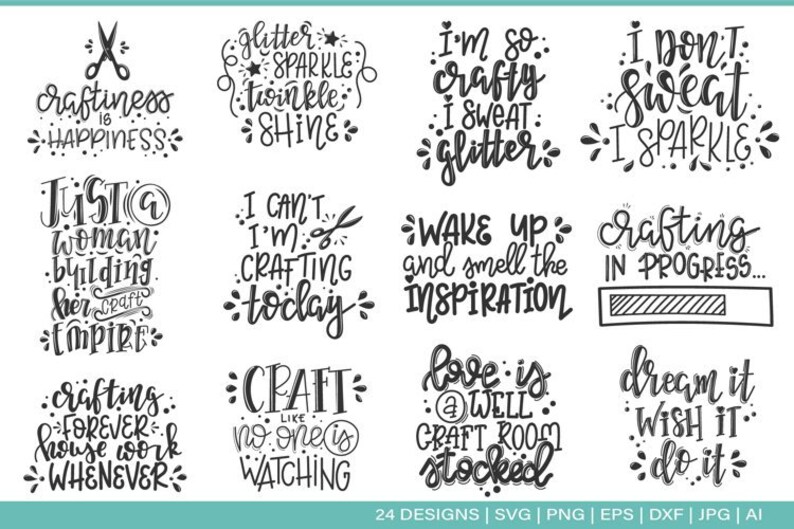 craftiness
IS
HAPPINESS
glitter
SPARKLE
twinkle
SHINE
I'M SO
crafty
I SWEAT
glitter
I DON'T
sweat
I SPARKLE
JUST a
woman
building
her CRAFT
EMPIRE
I CAN'T
I'M
CRAFTING
today
WAKE UP
and smell the
INSPIRATION
crafting
IN PROGRESS...
crafting
FOREVER
house work
WHENEVER
CRAFT
LIKE
no one is
WATCHING
love is
a WELL
CRAFT ROOM
stocked
dream it
WISH IT
do it
24 DESIGNS | SVG | PNG | EPS | DXF | JPG | AI